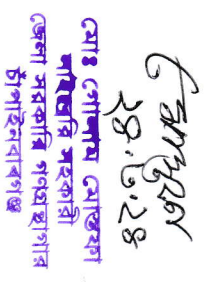 ২৪.৬.২৪
মোঃ গোলাম মোস্তফা
লাইব্রেরি সহকারী
জেলা সরকারি গণগ্রন্থাগার
চাঁপাইনবাবগঞ্জ